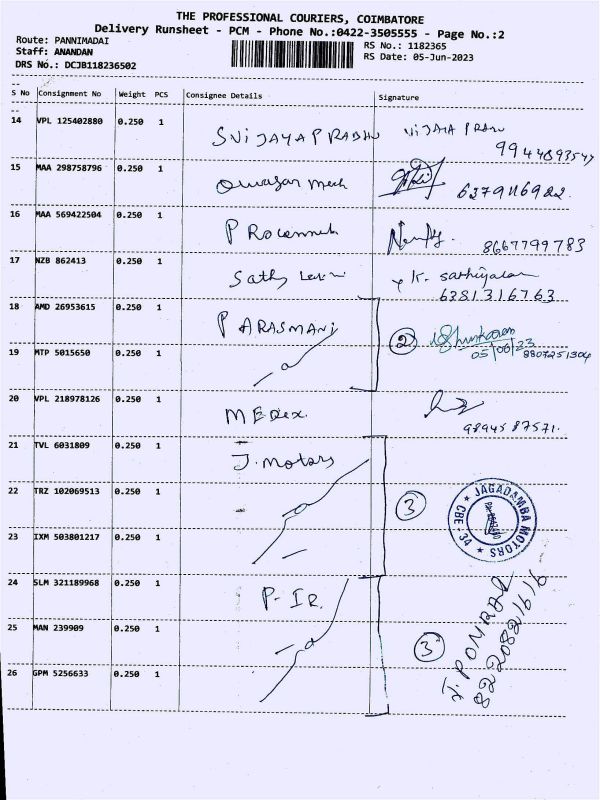 THE PROFESSIONAL COURIERS, COIMBATORE
Delivery Runsheet - PCM - Phone No.:0422-3505555 - Page No.:2
Route: PANNIMADAI
RS No.: 1182365
Staff: ANANDAN
RS Date: 05-Jun-2023
DRS No.: DCJB118236502
S No Consignment No Weight PCS Consignee Details Signature
14 VPL 125402880 0.250 1 SVIJAYAPRABHU VIJAYA PRABU
9944893547
15 MAA 298758796 0.250 1
6379116922.
16 MAA 569422504 0.250 1
8667799783
17 NZB 862413 0.250 1 K. sathiyaraj
6381316763
18 AMD 26953615 0.250 1 PARASMANI 2
05/06/23 8807251304
19 MTP 5015650 0.250 1
20 VPL 218978126 0.250 1 MEDEX.
9894587571.
21 TVL 6031809 0.250 1 J. Motors
22 TRZ 102069513 0.250 1 3 JAGADAMBA MOTORS CBE-34
23 IXM 503801217 0.250 1
24 SLM 321189968 0.250 1 P-IR.
25 MAN 239909 0.250 1 3
8220821616
26 GPM 5256633 0.250 1